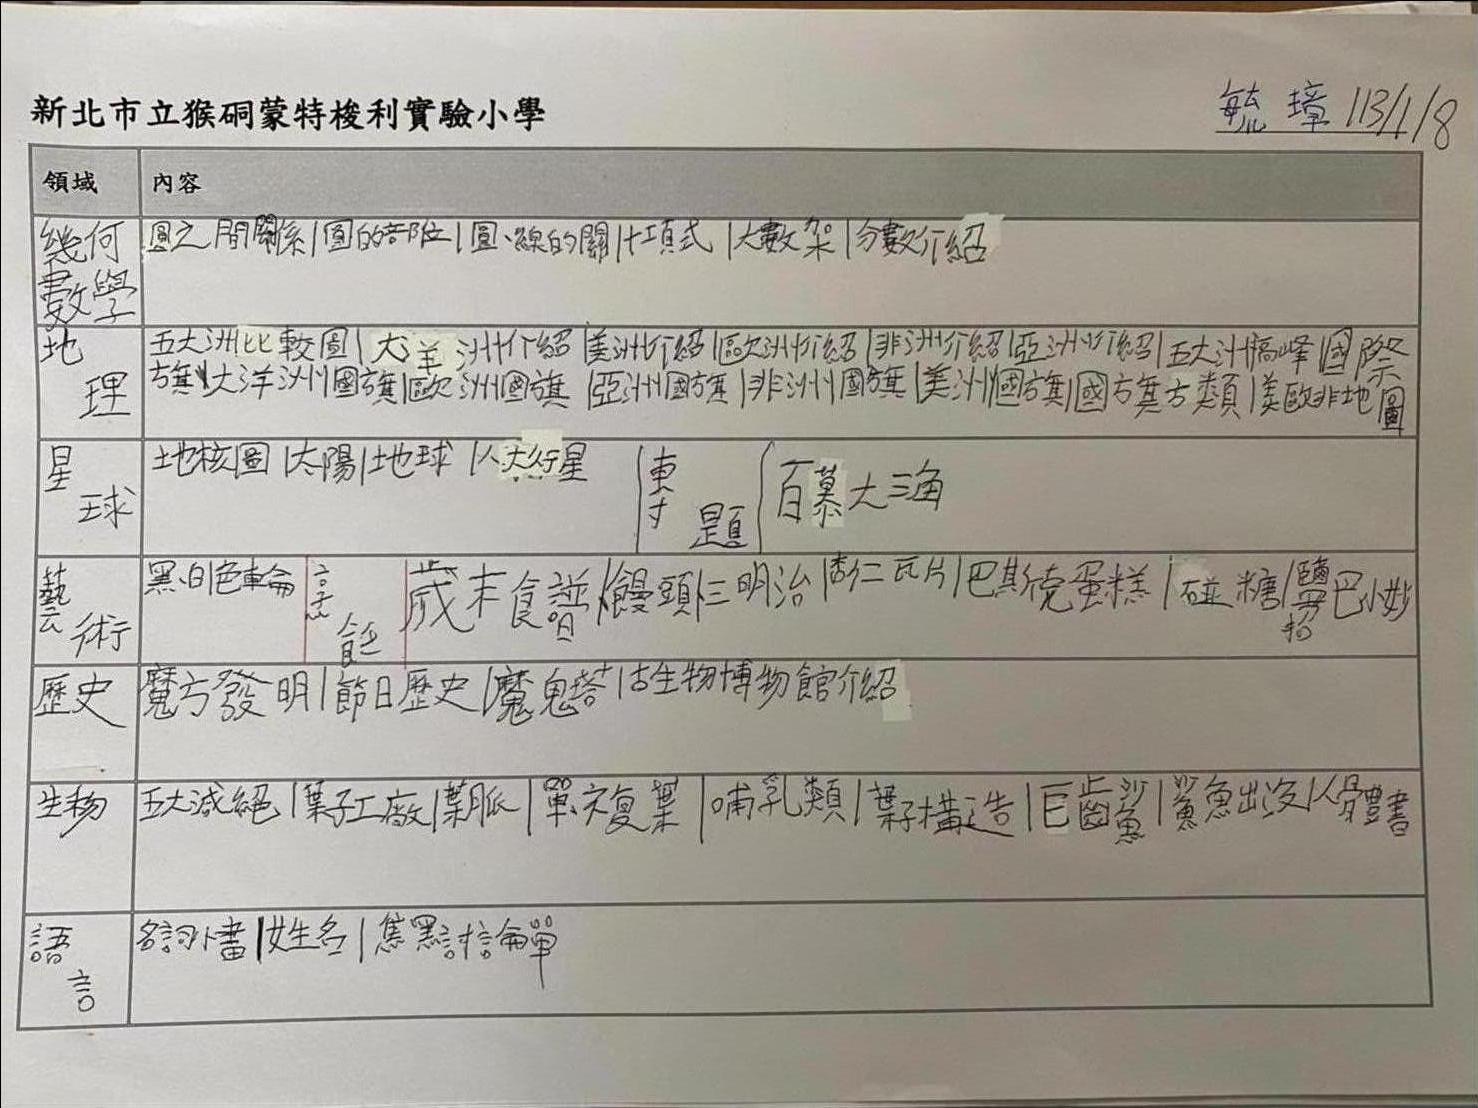 新北市立猴硐蒙特梭利實驗小學
毓璋 113/1/8
領域 內容
幾何
數學
圓之間關係|圓的部位|圓、線的關|十項式|大數架|分數介紹
地
理
五大洲比較圖|大洋洲介紹|美洲介紹|歐洲介紹|非洲介紹|亞洲介紹|五大洲高峰|國際
旗|大洋洲國旗|歐洲國旗|亞洲國旗|非洲國旗|美洲國旗|國旗方類|美歐非地圖
星
球
地核圖|太陽|地球|八大行星
專
題
百慕大三角
藝
術
黑、白色輪
烹
飪
歲末食譜|饅頭|三明治|杏仁瓦片|巴斯克蛋糕|碰糖|巴小妙
歷史
魔方發明|節日歷史|魔鬼塔|古生物博物館介紹
生物
五大滅絕|葉子工廠|葉脈|單、複葉|哺乳類|葉子構造|巨齒鯊|鯊魚出沒|人骨體書
語
言
名詞小書|姓名|焦點討論單